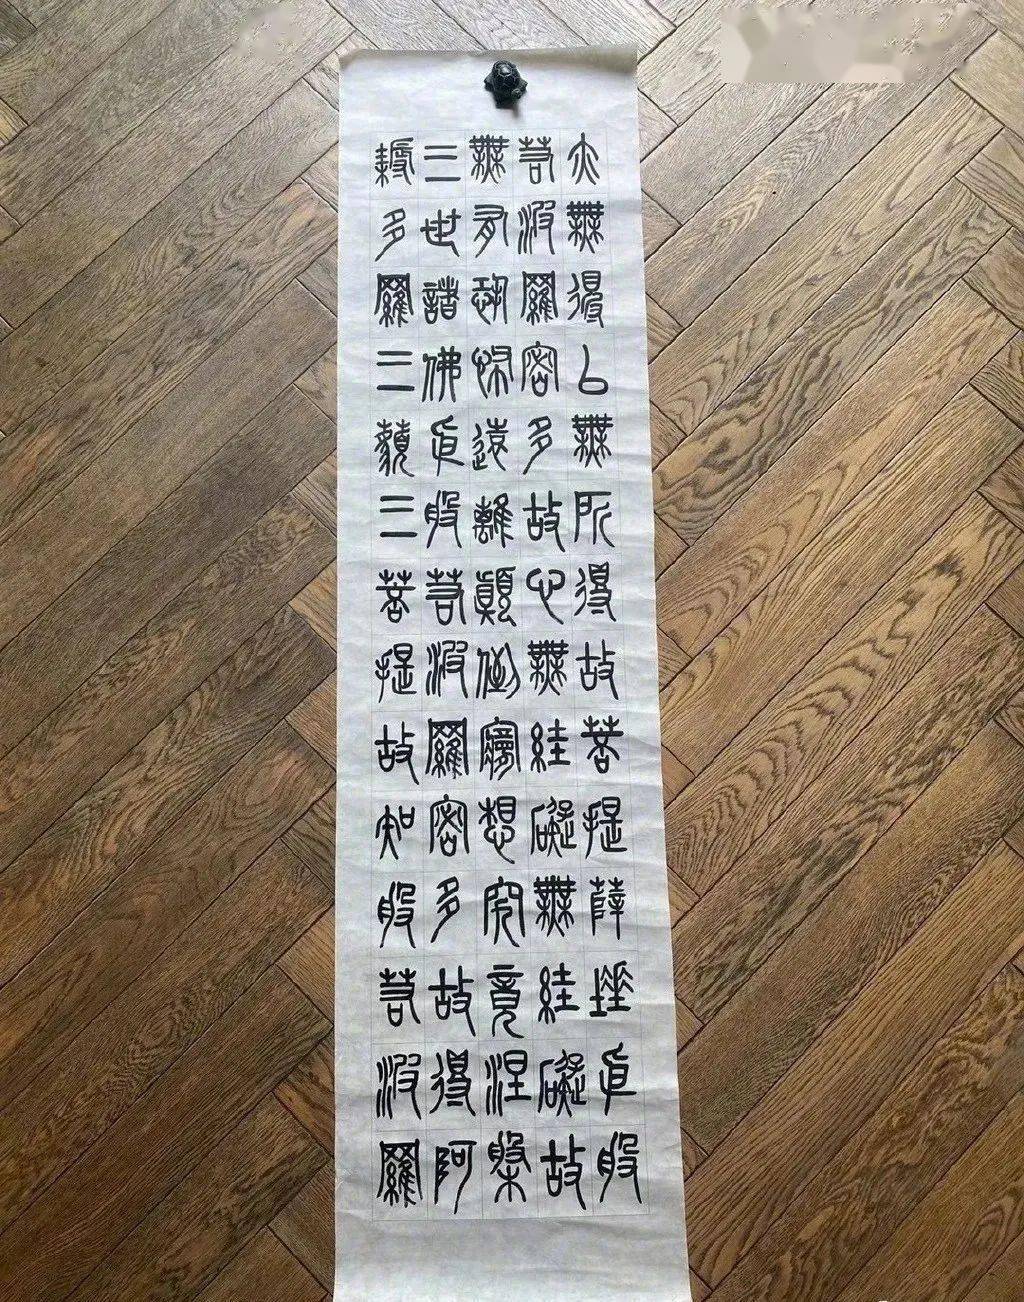 亦無得以無所得故菩提薩埵依般
若波羅蜜多故心無絓礙無絓礙故
無有恐怖遠離顛倒夢想究竟涅槃
三世諸佛依般若波羅蜜多故得阿
耨多羅三藐三菩提故知般若波羅